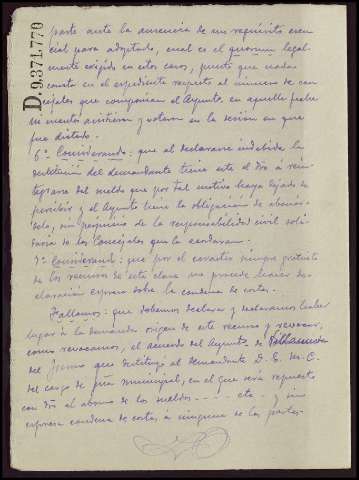 D.9.371.770
parte ante la ausencia de un requisito esen-
cial para adoptarlo, cual es el quorum legal-
mente exigido en estos casos, puesto que nada
consta en el expediente respecto al número de con-
cejales que componían el Aypnto. en aquella fecha
ni cuantos asistieron y votaron en la sesión en que
fue dictado.
6º Considerando: que al declararse indebida la
destitución del demandante tiene este el dro á rein-
tegrarse del sueldo que por tal motivo haya dejado de
percibir y el Aypnto. tiene la obligación de abonár-
selo, sin perjuicio de la responsabilidad civil soli-
daria de los Concejales que la acordaran.
7º Considerand: que por el carácter siempre gratuito
de los recursos de esta clase no procede hacer de-
claración expresa sobre la condena de costas.
Fallamos: que debemos declarar y declaramos haber
lugar á la demanda origen de este recurso y revocar,
como revocamos, el acuerdo del Aypnto. de Villanueva
del que destituyó al demandante D. E. M. C.
del cargo de municipal, en el que será repuesto
con dro al abono de los sueldos - - - - etc - y sin
expresa condena de costas á ninguna de las partes.